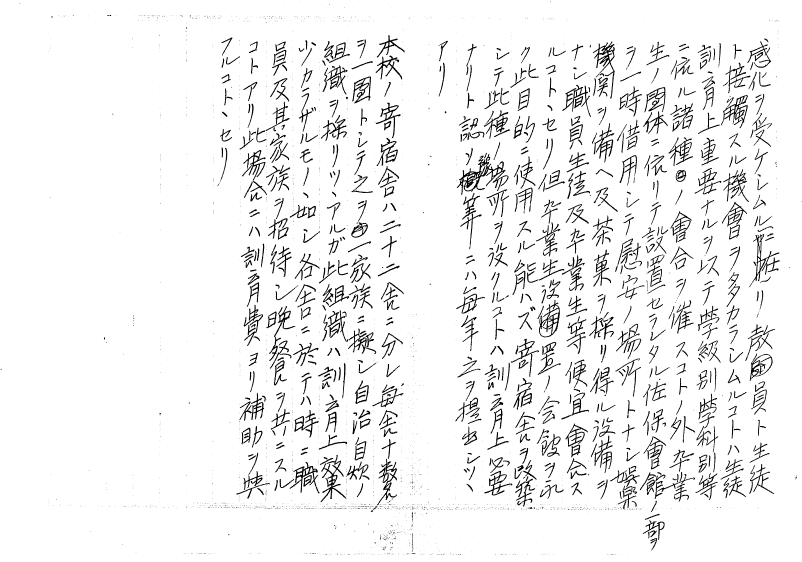 感化ヲ受ケシムルニ在リ教員ト生徒
ト接觸スル機會ヲ多カラシムルコトハ生徒
訓育上重要ナルヲ以テ學級別學科別等
ニ依ル諸種ノ會合ヲ催スコトノ外卒業
生ノ團体ニ依リテ設置セラレタル佐保會館ノ一部ヲ
ヲ一時借用シテ慰安ノ場所トナシ娯樂
機関ヲ備ヘ及茶菓ヲ採リ得ル設備ヲ
ナシ職員生徒及卒業生等便宜會合ス
ルコトトセリ但卒業生設置ノ会館ヲ永
ク此目的ニ使用スル能ハズ寄宿舎ヲ改築
シテ此種ノ場所ヲ設クルコトハ訓育上必要
ナリト認メ概算ニハ毎年之ヲ提出シツヽ
アリ.
本校ノ寄宿舎ハ二十二舎ニ分レ毎舎十数名
ヲ一團トシテ之ヲ一家族ニ擬シ自治自炊ノ
組織ヲ採リツヽアルガ此組織ハ訓育上効果
少カラザルモノヽ如シ各舎ニ於テハ時ニ職
員及其家族ヲ招待シ晩餐ヲ共ニスル
コトアリ此場合ニハ訓育費ヨリ補助ヲ与
フルコトヽセリ